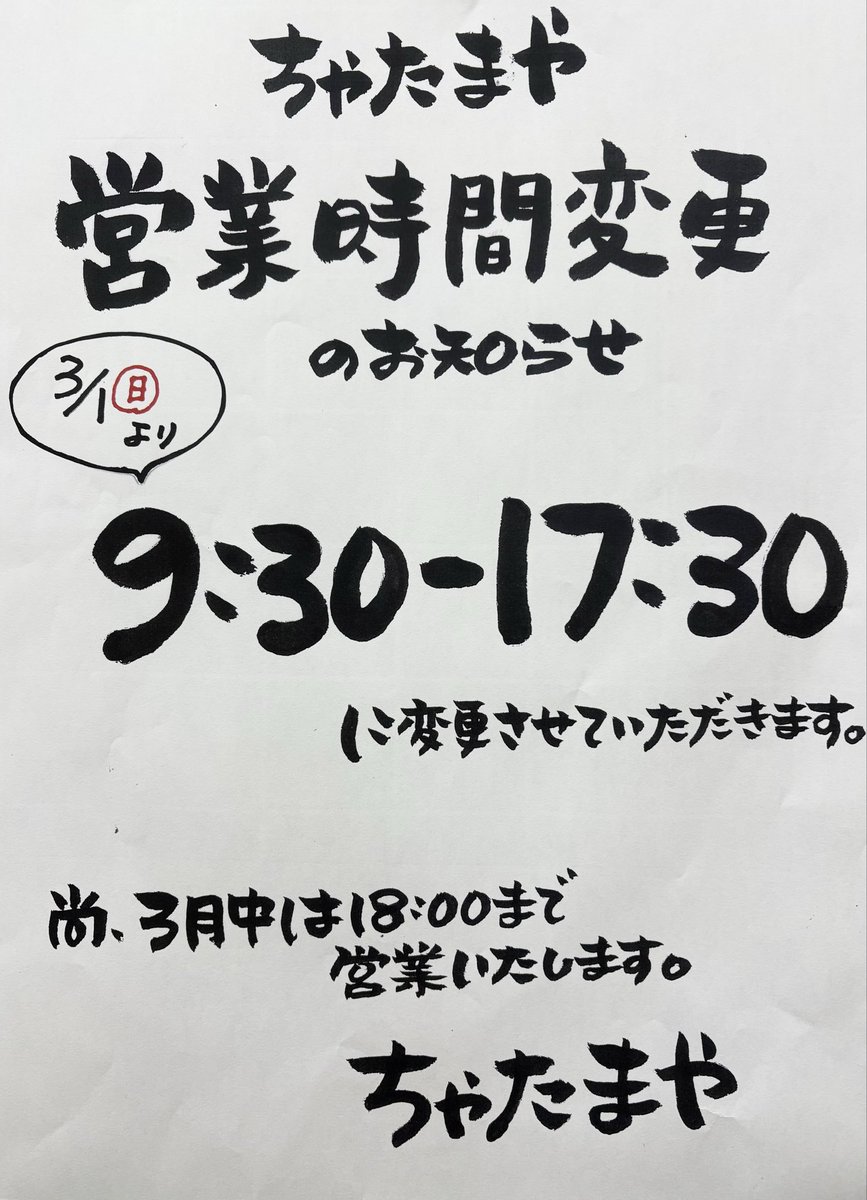 ちゃたまや
営業時間変更
のお知らせ
3/1㊐
より
9:30-17:30
に変更させていただきます。
尚、3月中は18:00まで
営業いたします。
ちゃたまや